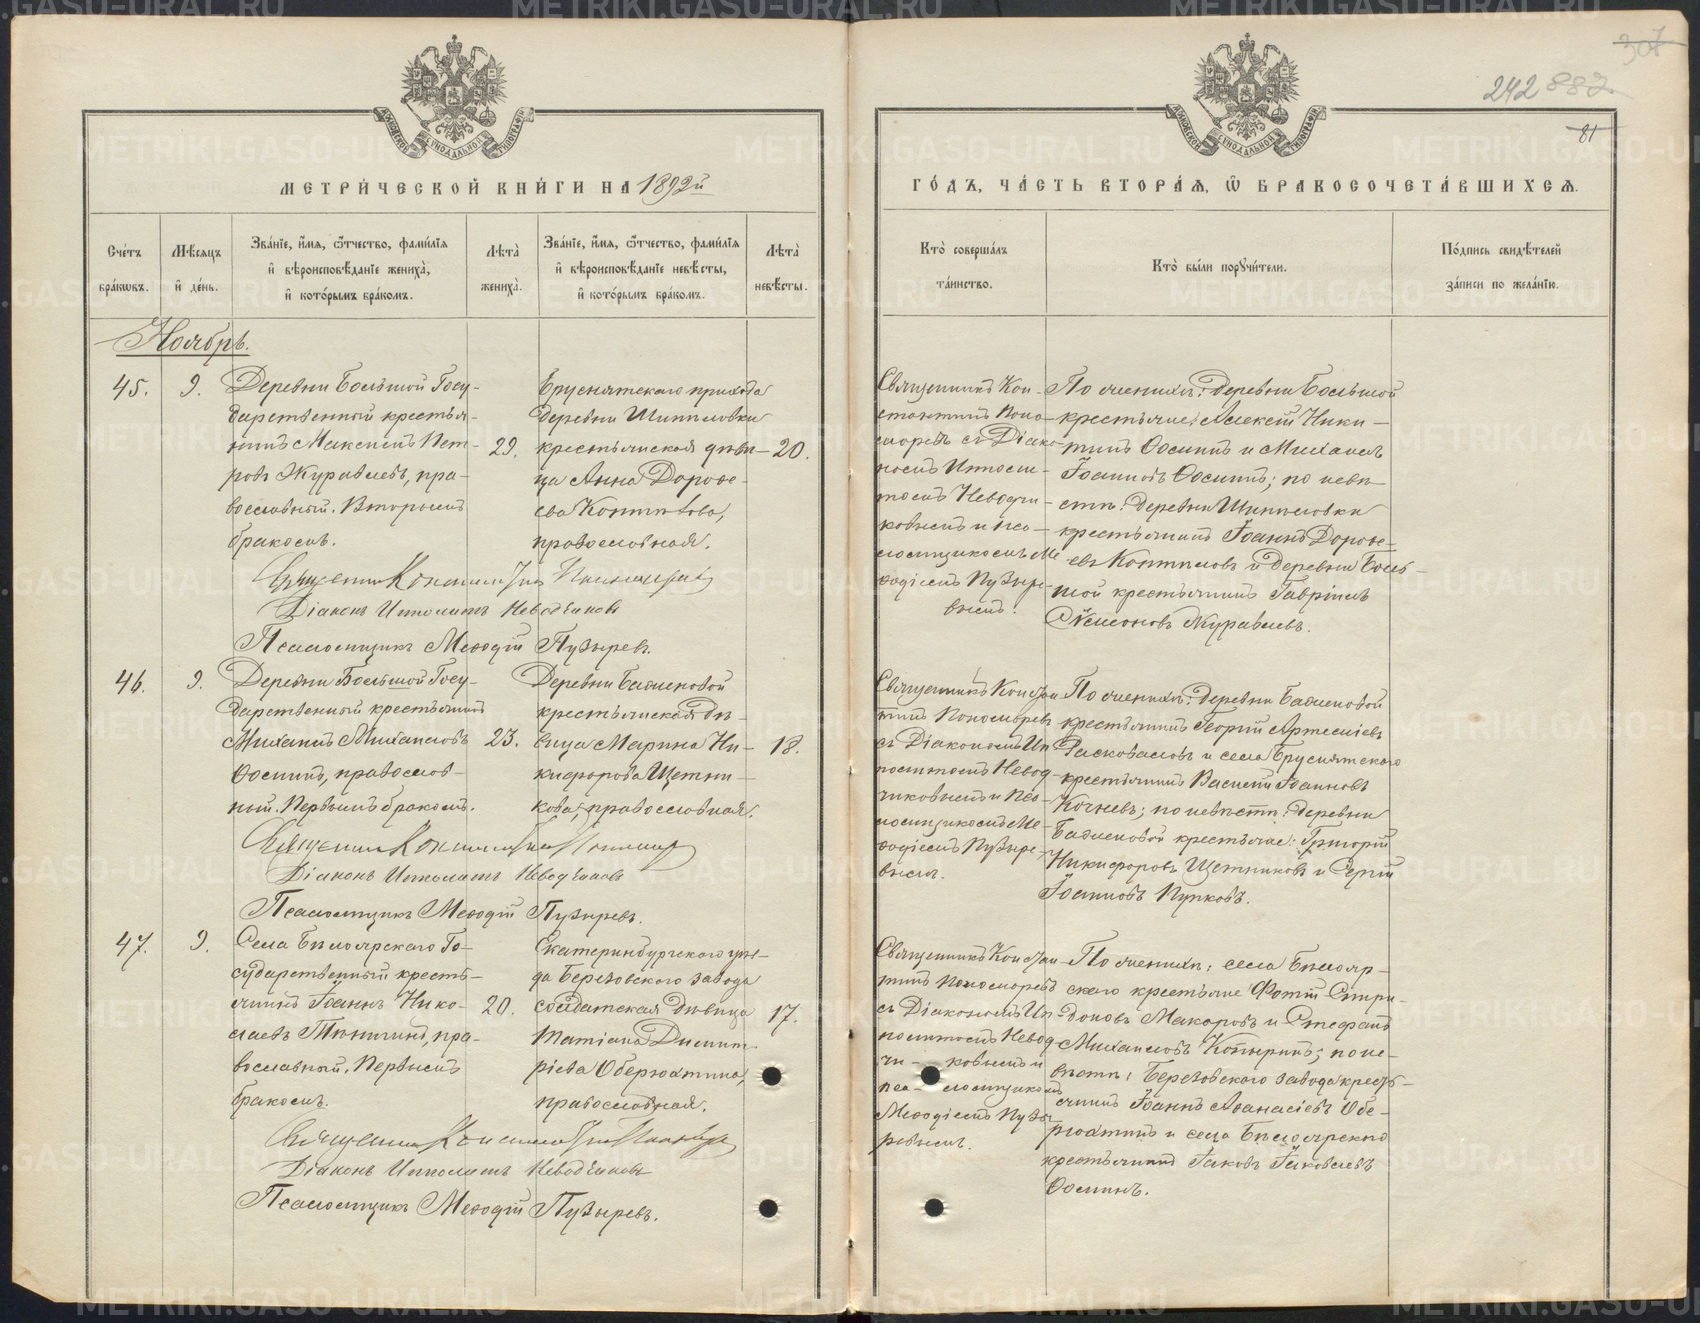 307
242 882
81
МЕТРИ́ЧЕСКОЙ КНИ́ГИ НА 1892й
ГО́ДЪ, ЧА́СТЬ ВТОРА́Я, Ѽ БРАКОСОЧЕТА́ВШИХСЯ.
Сче́тъ бра́кѡвъ.
Мѣ́сяцъ и҆ де́нь.
Зва́нїе, и҆́мя, ѻ҆́тчество, фами́лїя
и҆ вѣроисповѣ́данїе жениха̀,
и҆ кото́рымъ бра́комъ.
Лѣта̀ жениха̀.
Зва́нїе, и҆́мя, ѻ҆́тчество, фами́лїя
и҆ вѣроисповѣ́данїе невѣ́сты,
и҆ кото́рымъ бра́комъ.
Лѣта̀ невѣ́сты.
Кто̀ соверша́лъ
та́инство.
Кто̀ бы́ли порꙋчи́тели.
По́дпись свидѣ́телей
за́писи по жела́нїю.
Ноябрь.
45.
9.
Деревни Большой Госу-
дарственный крестья-
нинъ Максимъ Пет-
ровъ Журавлевъ, пра-
вославный. Вторымъ
бракомъ.
29.
Бруснятскаго прихода
деревни Шипиловки
крестьянская дѣви-
ца Анна Дороѳе-
ева
православная.
20.
Священникъ Кон-
стантинъ Поно-
маревъ съ Діако-
номъ Ипполи-
томъ Неводчи-
ковымъ и пса-
ломщикомъ Ме-
ѳодіемъ Пузыре-
вымъ.
По женихѣ: деревни Большой
крестьяне: Алексѣй Ники-
тинъ Ѳоминъ и Михаилъ
Іоанновъ Ѳоминъ; по невѣ-
стѣ: деревни Шипиловки
крестьянинъ Іоаннъ Дороѳе-
евъ и деревни Боль-
шой крестьянинъ Гавріилъ
Симеоновъ Журавлевъ.
Священникъ Константинъ Пономаревъ
Діаконъ Ипполитъ Неводчиковъ
Псаломщикъ Меѳодій Пузыревъ.
46.
9.
Деревни Большой Госу-
дарственный крестьянинъ
Михаилъ Михаиловъ
Ѳоминъ, православ-
ный. Первымъ бракомъ.
23.
Деревни Баженовой
крестьянская дѣ-
вица Марина Ни-
кифорова Щетни-
кова, православная.
18.
Священникъ Констан-
тинъ Пономаревъ
съ Діакономъ Ип-
политомъ Невод-
чиковымъ и пса-
ломщикомъ Ме-
ѳодіемъ Пузыре-
вымъ.
По женихѣ: деревни Баженовой
крестьянинъ Георгій Артеміевъ
и села Бруснятскаго
крестьянинъ Василій Іоанновъ
Кочневъ; по невѣстѣ: деревни
Баженовой крестьяне: Григорій
Никифоровъ Щетниковъ и Сергій
Іоанновъ Пупковъ.
Священникъ Константинъ Пономаревъ
Діаконъ Ипполитъ Неводчиковъ
Псаломщикъ Меѳодій Пузыревъ.
47.
9.
Села Бѣлоярскаго Го-
сударственный кресть-
янинъ Іоаннъ Нико-
лаевъ Тюнинъ, пра-
вославный. Первымъ
бракомъ.
20.
Екатеринбургскаго уѣз-
да Березовскаго завода
солдатская дѣвица
Татіана Димит-
ріева Оберюхтина,
православная.
17.
Священникъ Констан-
тинъ Пономаревъ
съ Діакономъ Ип-
политомъ Невод-
чи- ковымъ и
пса- ломщикомъ
Меѳодіемъ Пузы-
ревымъ.
По женихѣ: села Бѣлояр-
скаго крестьяне Фотій Спири-
доновъ Макаровъ и Стефанъ
Михаиловъ Копыринъ; по не-
вѣстѣ: Березовскаго завода кресть-
янинъ Іоаннъ Аѳанасіевъ Обе-
рюхтинъ и села Бѣлоярскаго
крестьянинъ Іаковъ Іаковлевъ
Ѳоминъ.
Священникъ Константинъ Пономаревъ
Діаконъ Ипполитъ Неводчиковъ
Псаломщикъ Меѳодій Пузыревъ.
METRIKI.GASO-URAL.RU